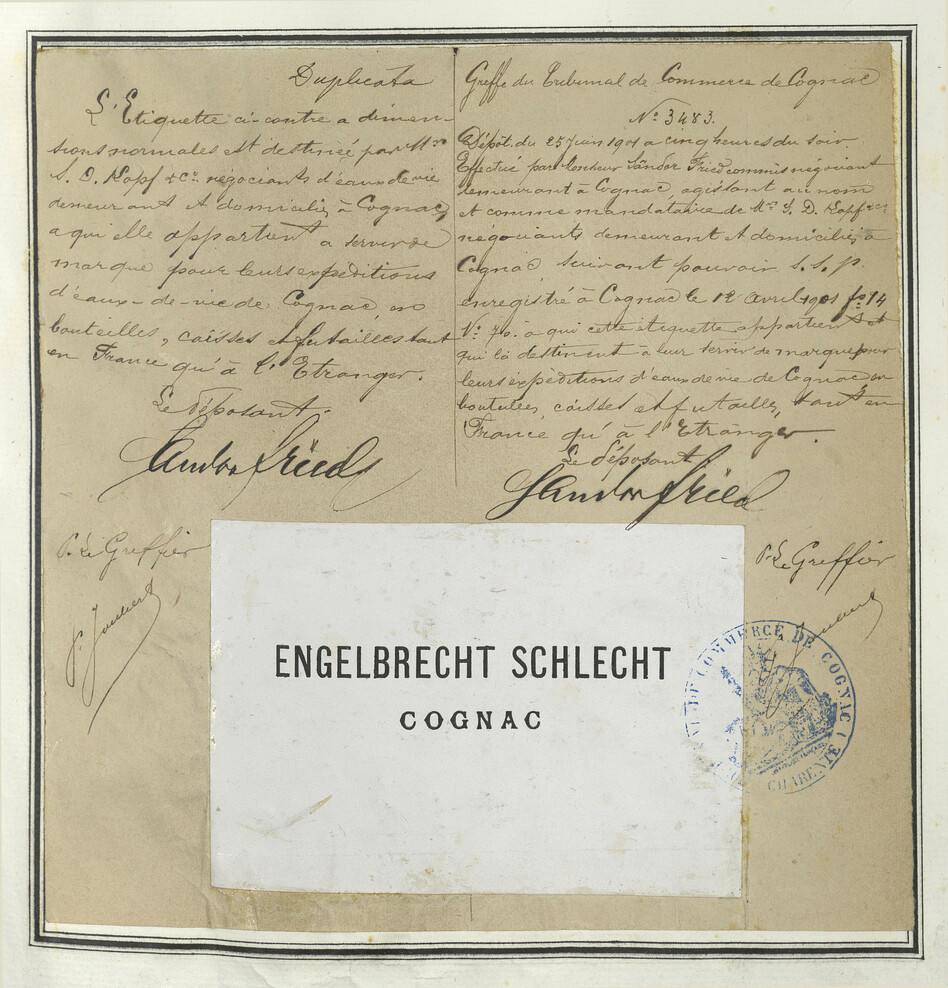 Duplicata
L'Etiquette ci-contre a dimen-
sions normales est destinée par Mrs
S. D. Kopf & Co. négociants d'eaux de vie
demeurant et domiciliés à Cognac,
a qui elle appartient a servir de
marque pour leurs expéditions
d'eaux-de-vie de Cognac, en
bouteilles, caisses et futailles tant
en France qu'à l'Etranger.
Le déposant.
Sandor Fried
P. Le Greffier
P. Joubert
Greffe du Tribunal de Commerce de Cognac
No 3483.
Dépôt du 25 Juin 1901 a cinq heures du soir
Effectué par Monsieur Sándor Fried commis négociant
demeurant à Cognac, agissant au nom
et comme mandataire de Mrs S. D. Kopf & Co
négociants demeurant et domiciliés a
Cognac suivant pouvoir S. S. P.
enregistré à Cognac le 12 avril 1901 fo 14
No 70. à qui cette etiquette appartient et
qui la destinent à leur servir de marque pour
leurs expéditions d'eaux de vie de Cognac en
bouteilles, caisses et futailles, tant en
France qu'à l'Etranger.
Le déposant
Sandor Fried
P. Le Greffier
ENGELBRECHT SCHLECHT
COGNAC
DE COMMERCE DE COGNAC
CHARENTE